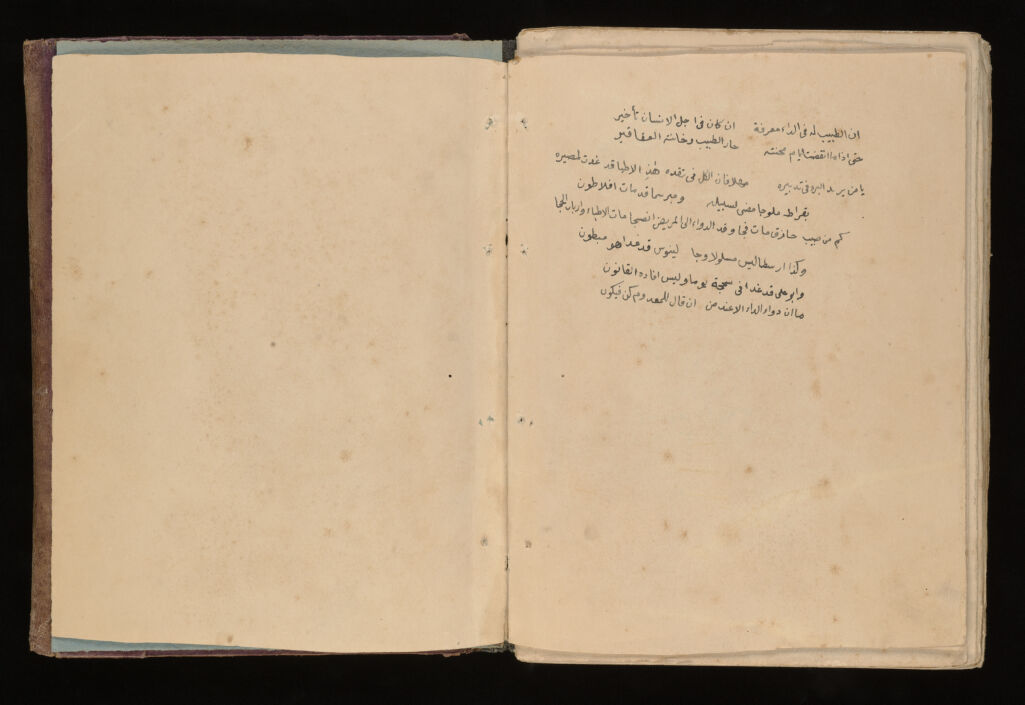 ان الطبيب له فى الداء معرفة ان كان فى اجل الانسان تأخير
حتى اذا ما انقضت ايام محنته حار الطبيب وخانته العقاقير
يا من يريد البرء فى تدبيره فان الكل فى هذه الاطبا قد غدت لمصيره
بقراط مفلوجا مضى لسبيله ومبرسما قد مات افلاطون
كم من طبيب حاذق مات فجا وقد الدواء الى المريض مات الاطباء وارباب الحجا
وكذا ارسطاليس مسلولا وجا لينوس قد غدا وهو مبطون
وابو على قد غدا فى يوما وليس افاده القانون
ما ان دواء الداء الا عند من ان قال للمعدوم كن فيكون